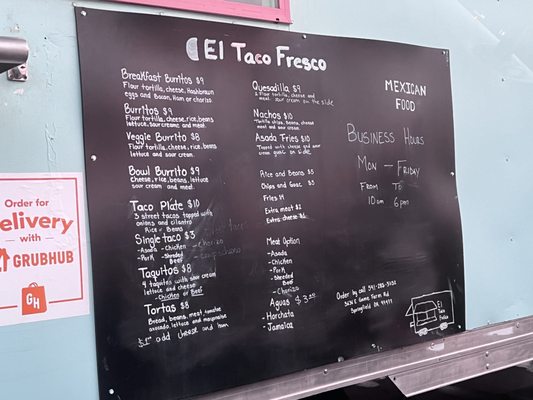 El Taco Fresco
Breakfast Burritos $9
Flour tortilla, cheese, Hashbrown
eggs and Bacon, Ham or chorizo
Burritos $9
Flour tortilla, cheese, rice, beans,
lettuce, sour cream and meat.
Veggie Burrito $8
Flour tortilla, cheese, rice, beans
lettuce and sour cream
Bowl Burrito $9
Cheese, rice, beans, lettuce
sour cream and meat.
Taco Plate $10
3 street tacos topped with
onions and cilantro
Rice & Beans
Single taco $3
-Asada -Chicken -chorizo
-Pork -Shreded
Beef
Taquitos $8
4 taquitos with sour cream
lettuce and cheese
-Chicken or Beef
Tortas $8
Bread, beans, meat, tomatoe
avocado, lettuce and mayonaise
$1.00 add cheese and ham
Quesadilla $9
2 Flour tortilla, cheese and
meat. sour cream on the side
Nachos $10
Tortilla chips, beans, cheese
meat and sour cream.
Asada Fries $10
Topped with cheese and sour
cream, guac on side.
Rice and Beans $5
Chips and Guac $5
Fries $4
Extra meat $2
Extra cheese $1
Meat Option
- Asada
- Chicken
- Pork
- Shreded
Beef
- Chorizo
Aguas $3.00
- Horchata
- Jamaica
MEXICAN
FOOD
BUSINESS HOURS
MON - FRIDAY
FROM TO
10am 6pm
Order by call
Springfield OR 97477
El
Taco
Fresco
Order for
Delivery
with
GRUBHUB
GH